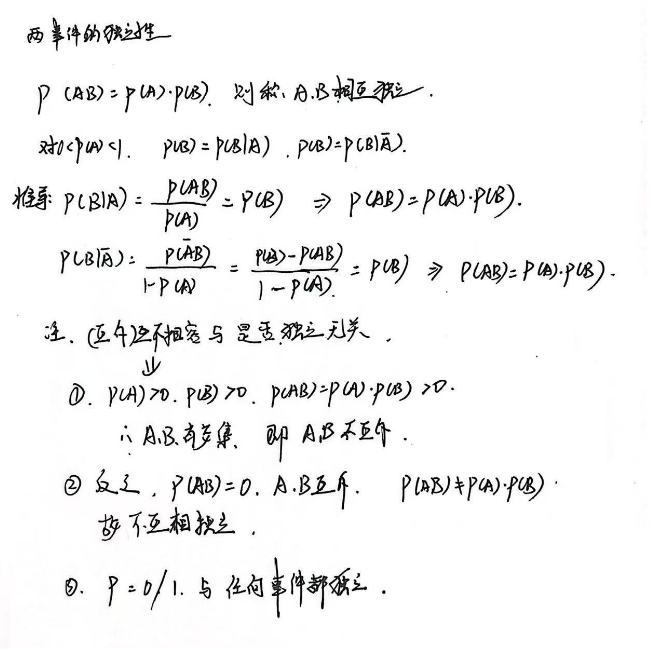 两事件的独立性
P(AB)=P(A)·P(B). 则称、A.B相互独立.
对0<P(A)<1. P(B)=P(B|A). P(B)=P(B|Ā).
推导: P(B|A)=P(AB)/P(A)=P(B) ⇒ P(AB)=P(A)·P(B).
P(B|Ā)=P(ĀB)/1-P(A)=P(B)-P(AB)/1-P(A).=P(B) ⇒ P(AB)=P(A)·P(B).
注、(互斥)互不相容与是否独立无关.
⇓
①. P(A)>0. P(B)>0. P(AB)=P(A)·P(B)>0.
∴ A.B.有交集. 即 A.B不互斥.
② 反之, P(AB)=0. A.B互斥. P(AB)≠P(A)·P(B).
故不互相独立.
③. P=0/1. 与任何事件都独立.